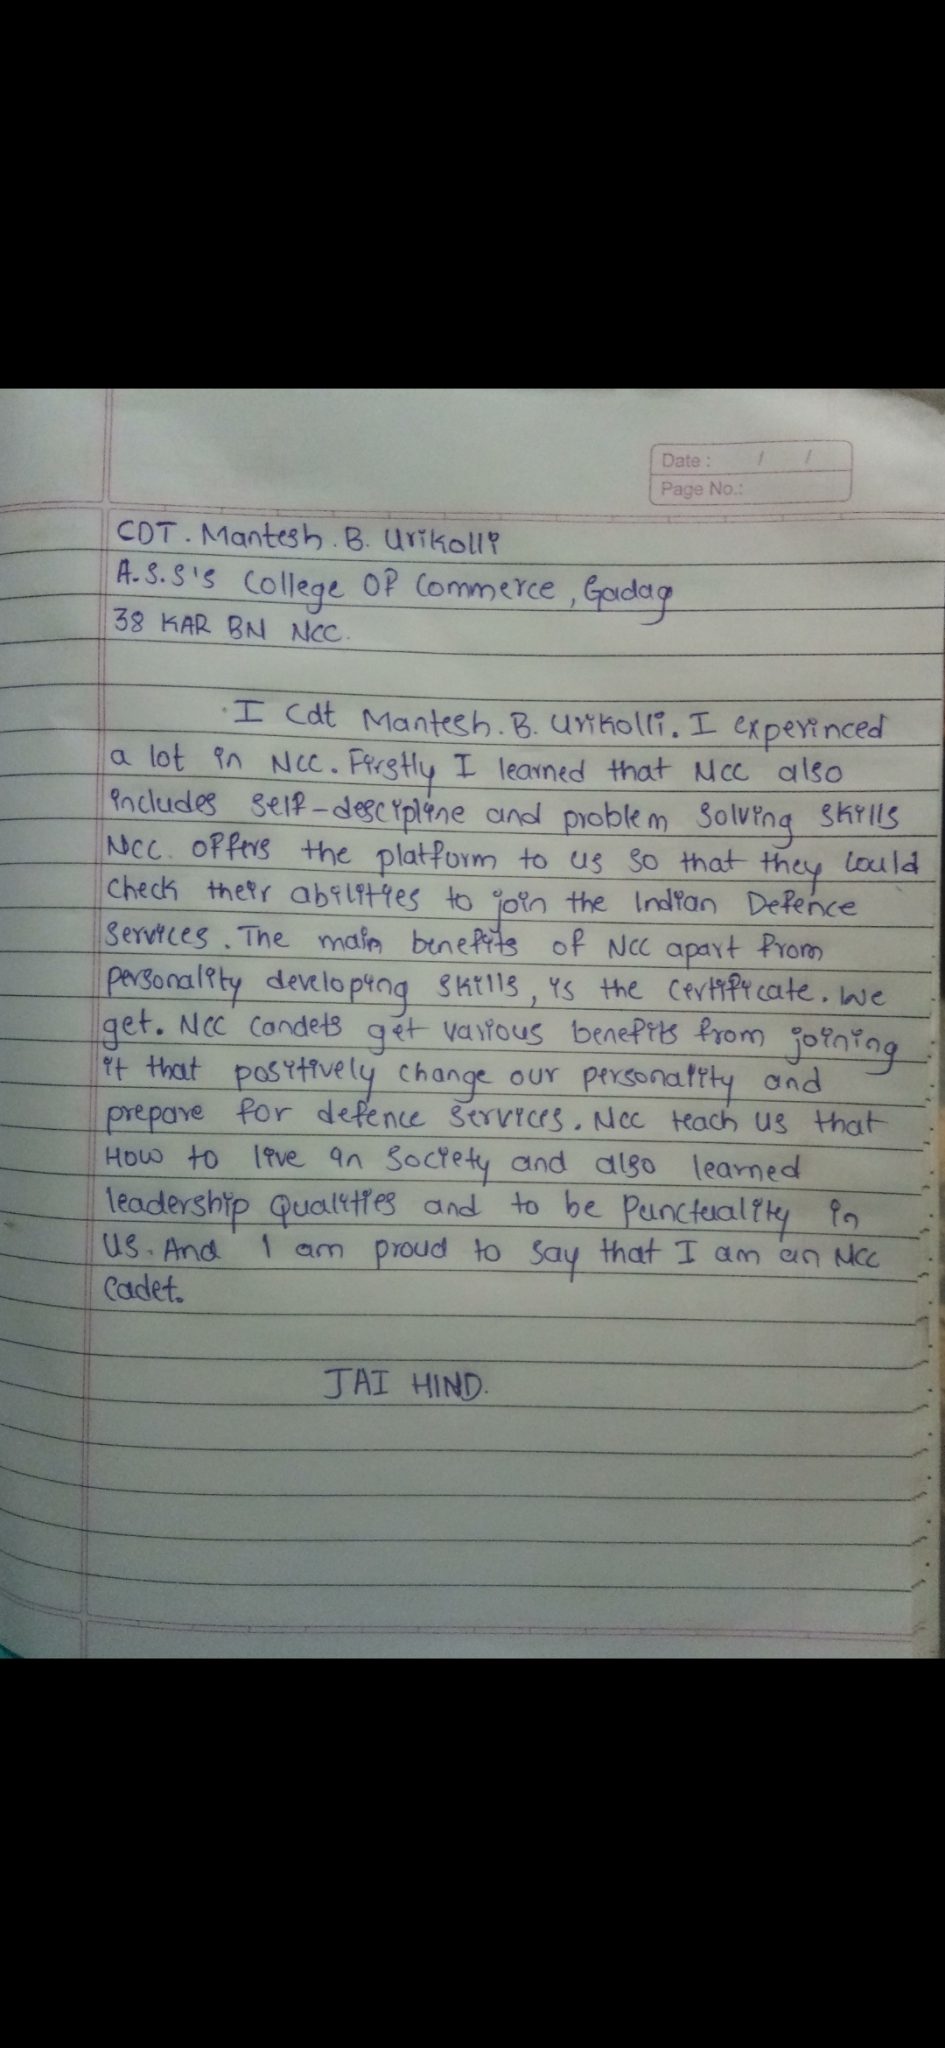 Date : / /
Page No.:
CDT. Mantesh. B. Urikolli
A.S.S's College OF Commerce, Gadag
38 KAR BN NCC.
I Cdt Mantesh. B. Urikolli. I experinced
a lot in NCC. Firstly I learned that NCC also
includes self-descipline and problem solving skills
NCC. offers the platform to us so that they could
check their abilities to join the Indian Defence
services. The main benefits of NCC apart from
personality developing skills, is the certificate. We
get. NCC candets get various benefits from joining
it that positively change our personality and
prepare for defence services. NCC teach us that
How to live in society and also learned
leadership Qualities and to be Punctuality in
us. And I am proud to say that I am an NCC
Cadet.
JAI HIND.